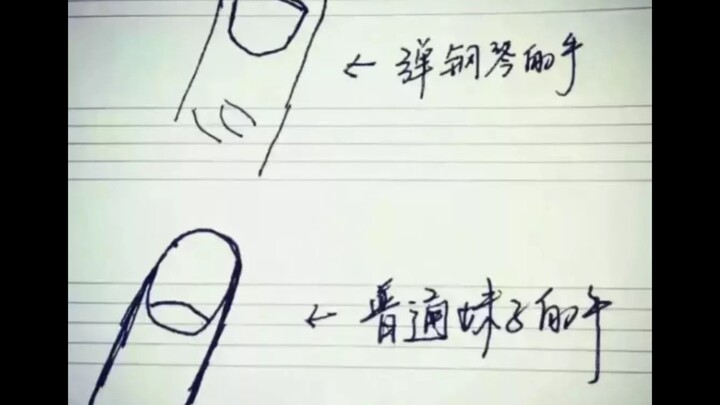 ← 弹钢琴的手
← 普通妹子的手